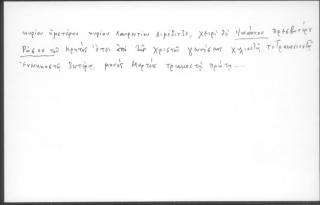 κυρίου ἡμετέρου κυρίου Λαυρεντίου διμιδίτις, χειρὶ δὲ Ἰωάννου πρεσβυτέρου
Ῥώσου τοῦ Κρητὸς ἔτει ἀπὸ τῆς Χριστοῦ γεννήσεως χιλιοστῷ τετρακοσιοστῷ
ἐννενηκοστῷ δευτέρῳ, μηνὸς Μαρτίου τριακοστῇ πρώτῃ....